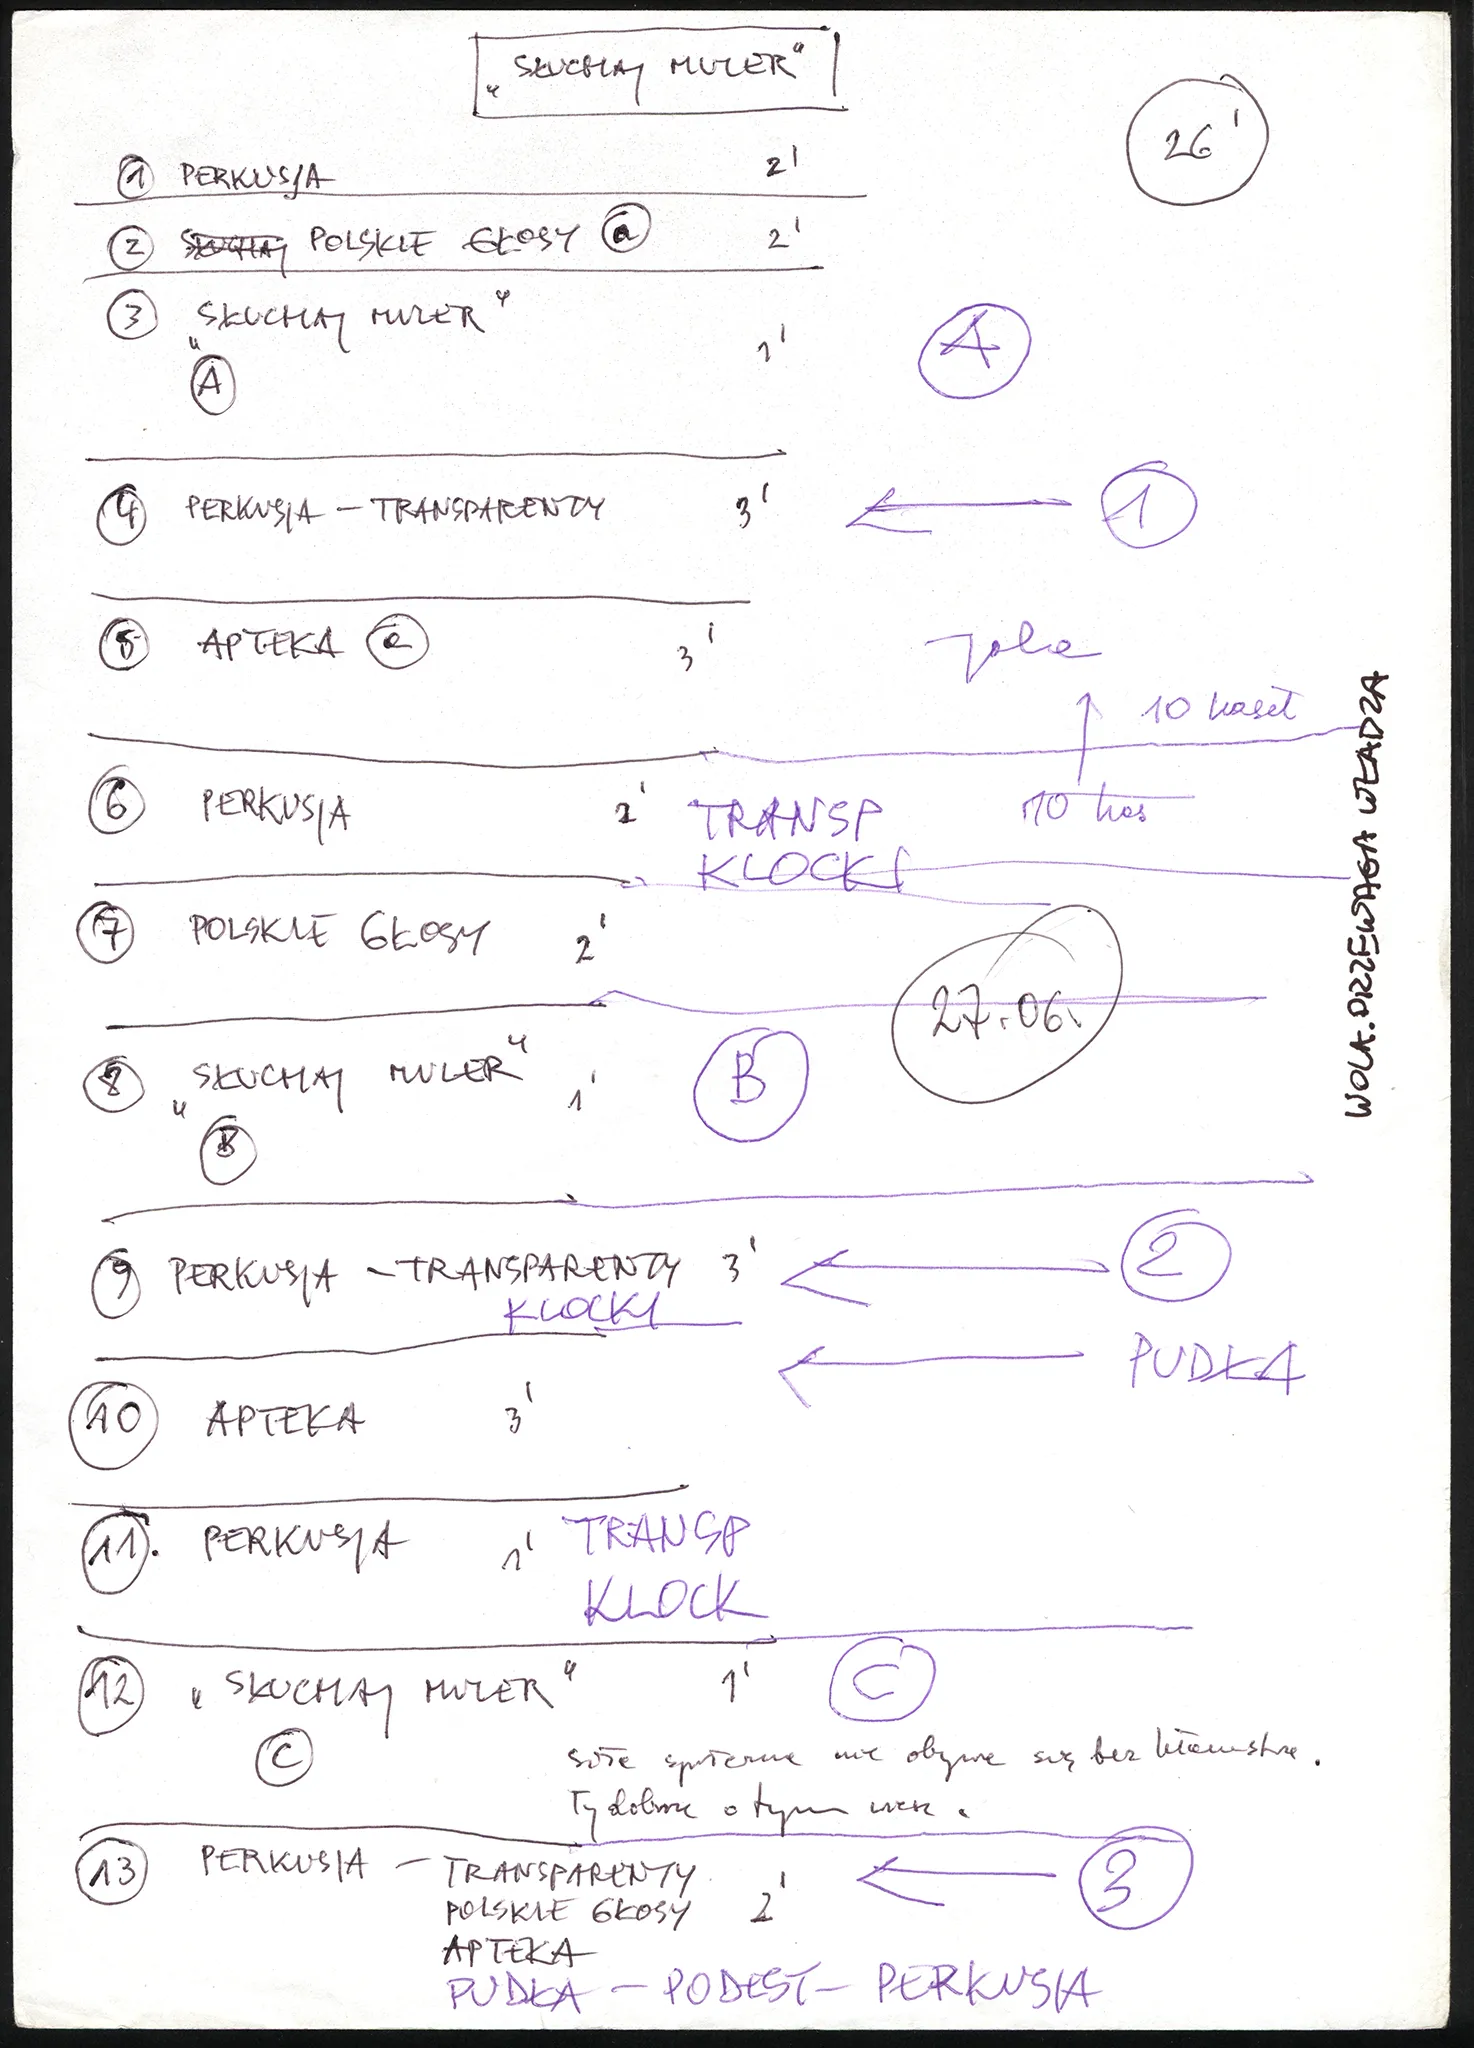 „SŁUCHAJ MULER"
26'
1 PERKUSJA 2'
2 SŁUCHAJ POLSKIE GŁOSY a 2'
3 „SŁUCHAJ MULER" 1'
A
A
4 PERKUSJA – TRANSPARENTY 3' ← 1
5 APTEKA a 3'
↑ 10 kaset
6 PERKUSJA 2' TRANSP
KLOCKI
7 POLSKIE GŁOSY 2'
27.06.
8 „SŁUCHAJ MULER" 1' B
B
9 PERKUSJA – TRANSPARENTY 3' ← 2
KLOCKI
← PUDŁA
10 APTEKA 3'
11. PERKUSJA 1' TRANSP
KLOCK
12 „SŁUCHAJ MULER" 1' C
C
nie obywa się bez kłamstwa.
Ty dobrze o tym wiesz.
13 PERKUSJA – TRANSPARENTY 2' ← 3
POLSKIE GŁOSY
APTEKA
PUDŁA – PODEST – PERKUSJA
WOLA. PRZEWAGA WŁADZA